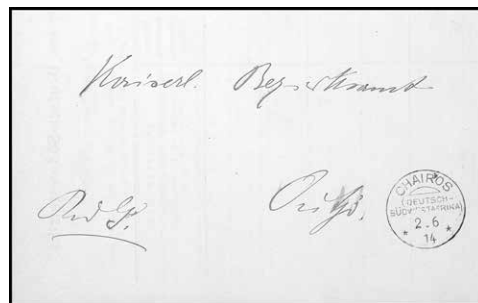 Kaiserl. Bezirksamt
Outjo.
CHAIROS
(DEUTSCH-
SÜDWESTAFRIKA)
* 2.6 *
14